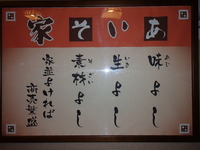 家そいあ
味よし
生よし
素材よし
家並よければ
商売繁盛